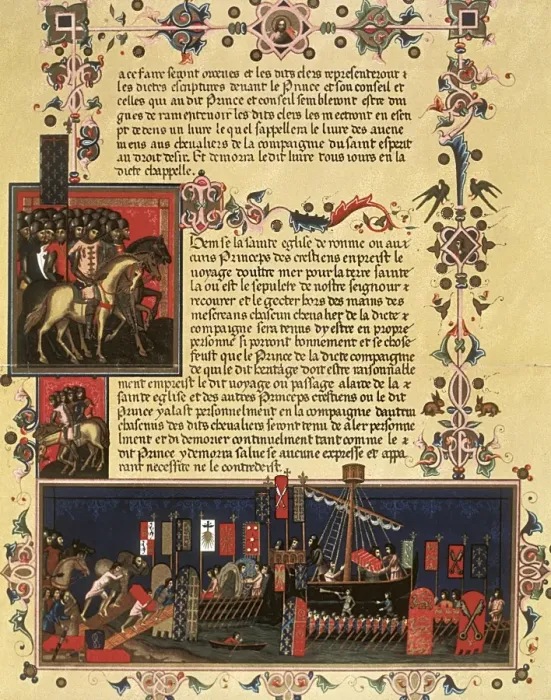 a ce faire seront ordenes et les dits clers representeront &
les dictes escriptures devant le Prince et son conseil et
celles qui au dit Prince et conseil sembleront estre din
gnes de ramentevoir les dits clers les mectront en escri
pt dedens un livre le quel sappellera le livre des avene
mens aus chevaliers de la compaignie du saint esperit
au droit desir. Et demorra le dit livre tous jours en la
dicte chappelle.
Item se la sainte eglise de romme ou aux
cuns Princeps des crestiens enpreist le
voyage doultre mer pour la terre sainte
la ou est le sepulcre de nostre seignour &
recourer et le gecter hors des mains des
mescreans chascun chevalier de la dicte &
compaignie sera tenus dy estre en propre
personne si porront bonnement et se chose
feust que le Prince de la dicte compaignie
de qui le dit heritage doit estre raisonnable
ment empreist le dit voyage ou passage alaide de la &
sainte eglise et des autres Princeps crestiens ou le dit
Prince y alast personnelment en la compaignie dautrui
chascuns des dits chevaliers seront tenu de aler personne
lment et di demorer continuelment tant comme le &
dit Prince y demorra salve se aucune expresse et appa
rant necessite ne le contredeist.